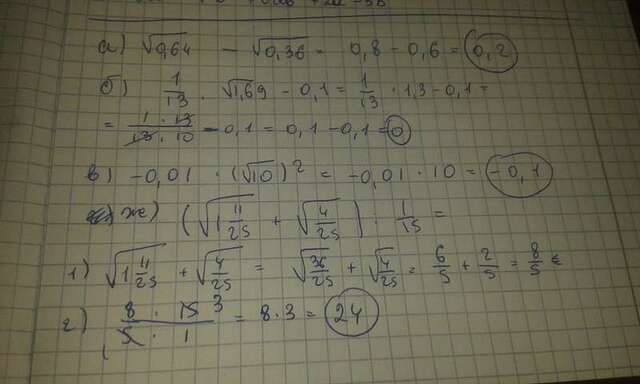 а) √0,64 − √0,36 = 0,8 − 0,6 = 0,2
б) 1/13 · √1,69 − 0,1 = 1/13 · 1,3 − 0,1 =
= 1 · 13/13 · 10 − 0,1 = 0,1 − 0,1 = 0
в) −0,01 · (√10)² = −0,01 · 10 = −0,1
ж) (√1 11/25 + √4/25) : 1/15 =
1) √1 11/25 + √4/25 = √36/25 + √4/25 = 6/5 + 2/5 = 8/5
2) 8 · 15 3/5 · 1 = 8 · 3 = 24